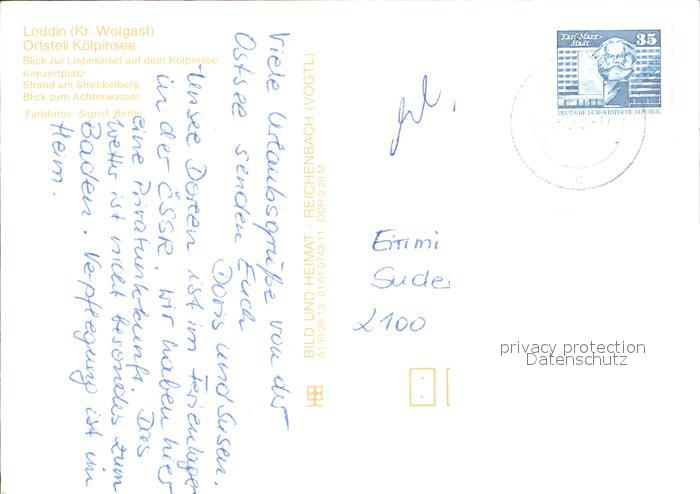 Loddin (Kr. Wolgast)
Ortsteil Kölpinsee
Blick zur Liebesinsel auf dem Kölpinsee
Konzertplatz
Strand am Streckelberg
Blick zum Achterwasser
Farbfotos: Sigrist, Berlin
Viele Urlaubsgrüße von der
Ostsee senden Euch
Doris und Susen.
Unsee Doreen ist im Ferienlager
in der ČSSR. Wir haben hier
eine Privatunkunft. Das
Wetter ist nicht besonders zum
Baden. Verpflegung ist im
Heim.
BILD UND HEIMAT · REICHENBACH (VOGTL)
A1/III/26/13 01 01 0743/11 DDR 0,20 M
Karl-Marx-
Stadt
35
DEUTSCHE DEMOKRATISCHE REPUBLIK
c
2100
privacy protection
Datenschutz